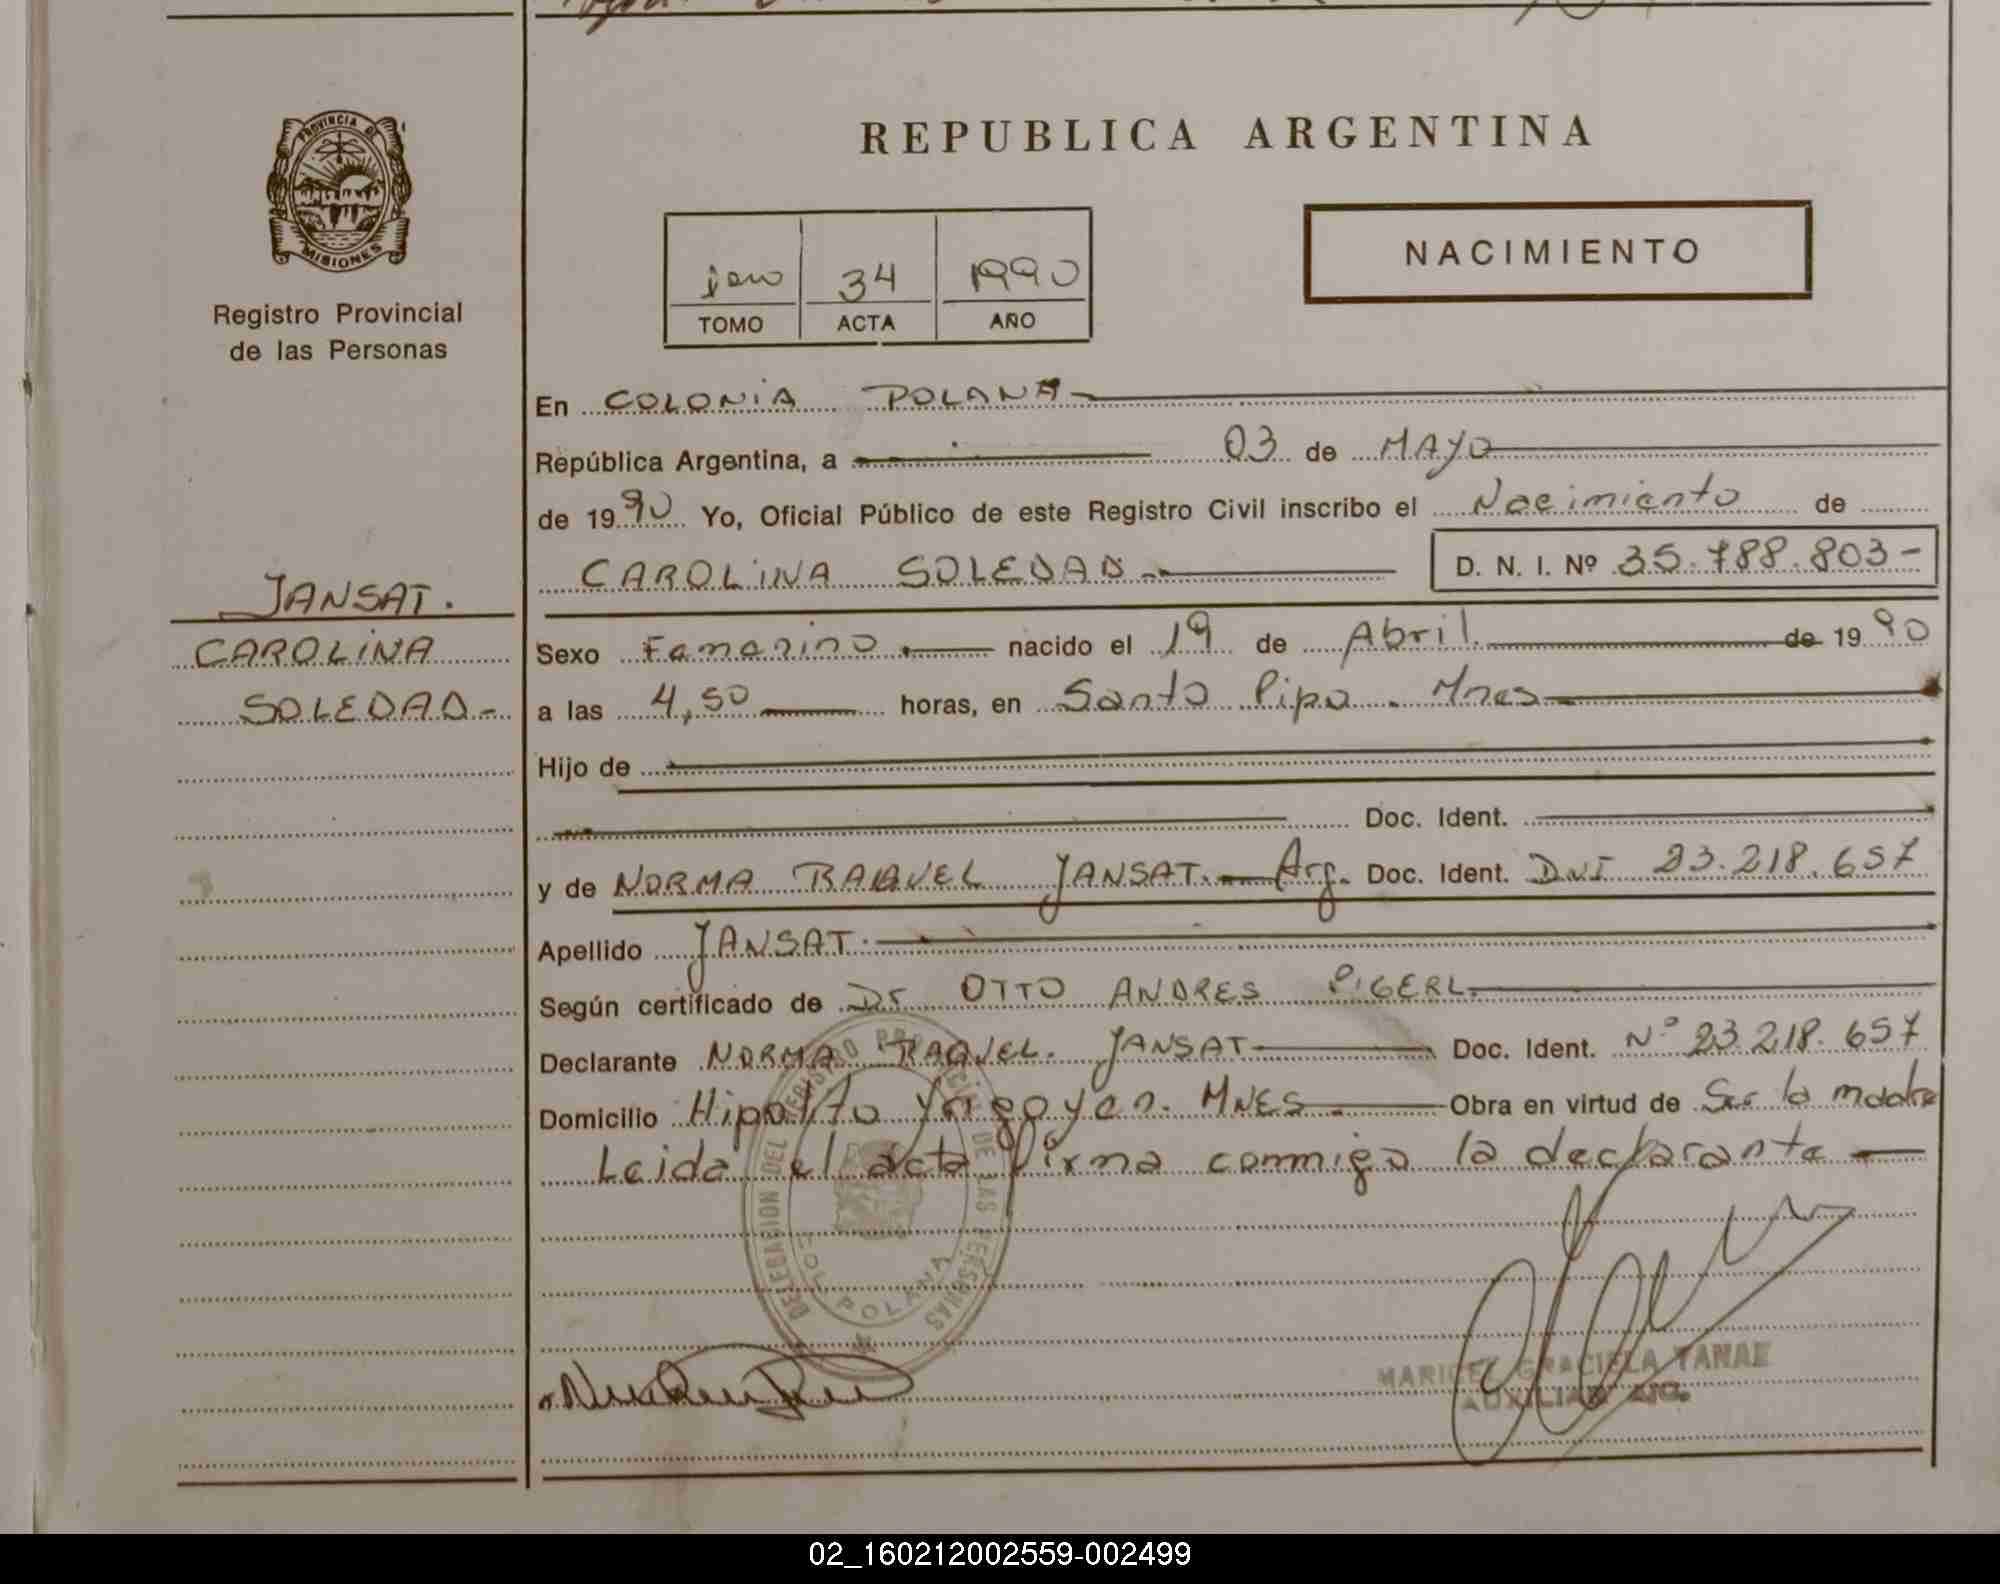 REPUBLICA ARGENTINA
PROVINCIA DE
MISIONES
Registro Provincial
de las Personas
NACIMIENTO
1990
34
TOMO ACTA AÑO
En COLONIA POLANA
República Argentina, a 03 de MAYO
de 1990 Yo, Oficial Público de este Registro Civil inscribo el Nacimiento de
CAROLINA SOLEDAD D. N. I. Nº 35.788.803-
JANSAT.
CAROLINA
SOLEDAD-
Sexo Femenino nacido el 19 de Abril de 1990
a las 4,50 horas, en Santo Pipo. Mnes
Hijo de
Doc. Ident.
y de NORMA RAQUEL JANSAT. Arg. Doc. Ident. DNI 23.218.657
Apellido JANSAT.
Según certificado de Dr OTTO ANDRES PIGERL.
Declarante NORMA RAQUEL. JANSAT Doc. Ident. Nº 23.218.657
Domicilio Hipolito Yrigoyen. MNES. Obra en virtud de Ser la madre
Leida el acta firma conmigo la declarante
DELEGACION DEL REGISTRO PROVINCIAL DE LAS PERSONAS
COL. POLANA
GRACIELA TANAE
AUXILIAR
02_160212002559-002499